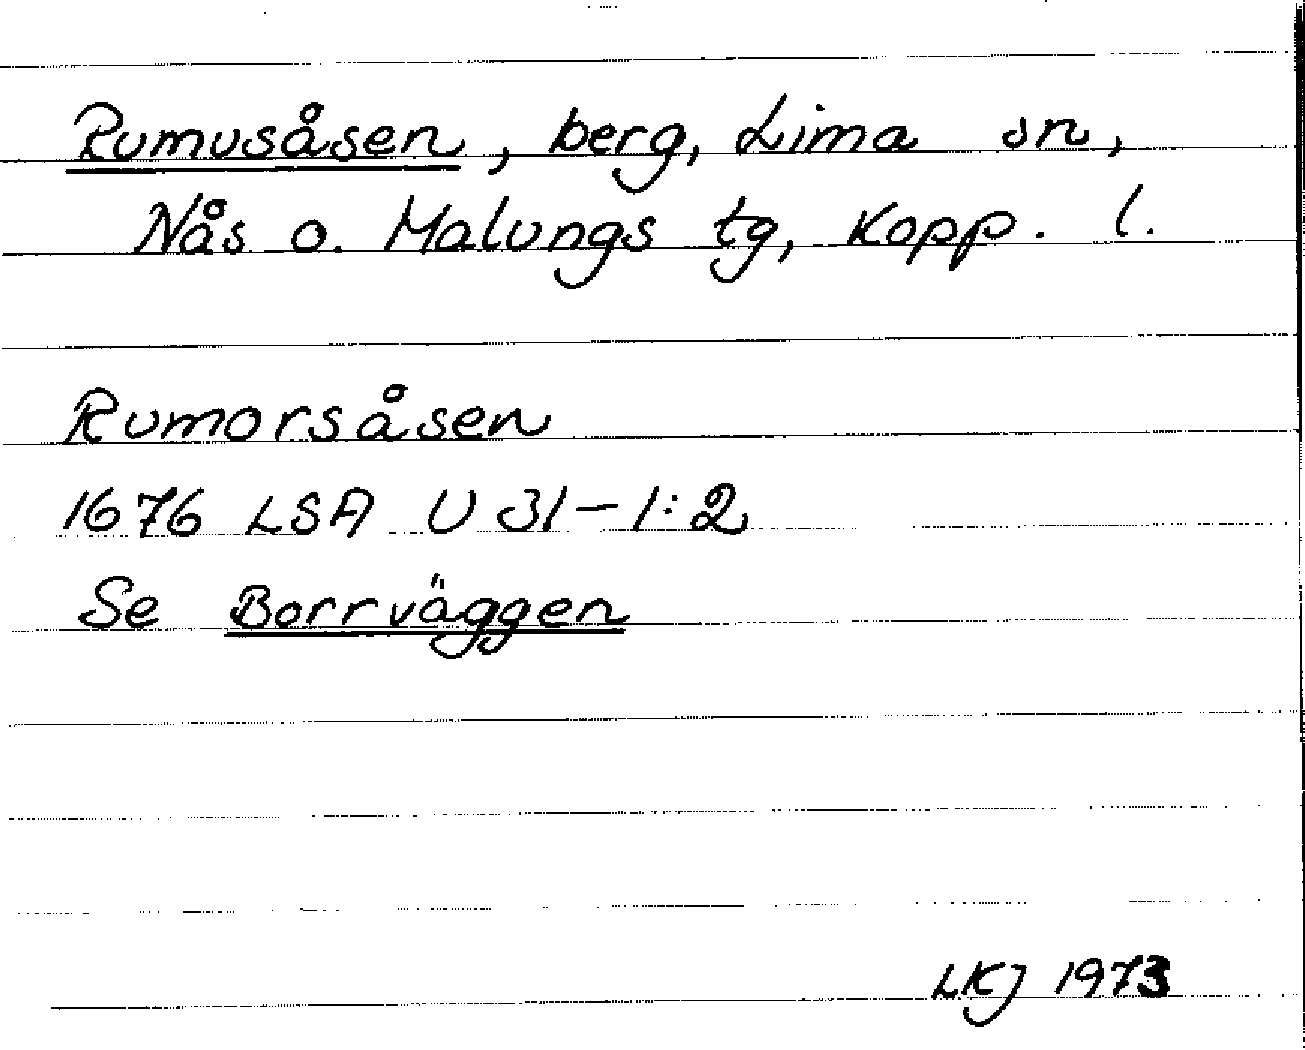 Rumusåsen, berg, Lima sn,
Nås o. Malungs tg, Kopp. l.
Rumorsåsen
1676 LSA U 31-1:2
Se Borrväggen
LKJ 1973